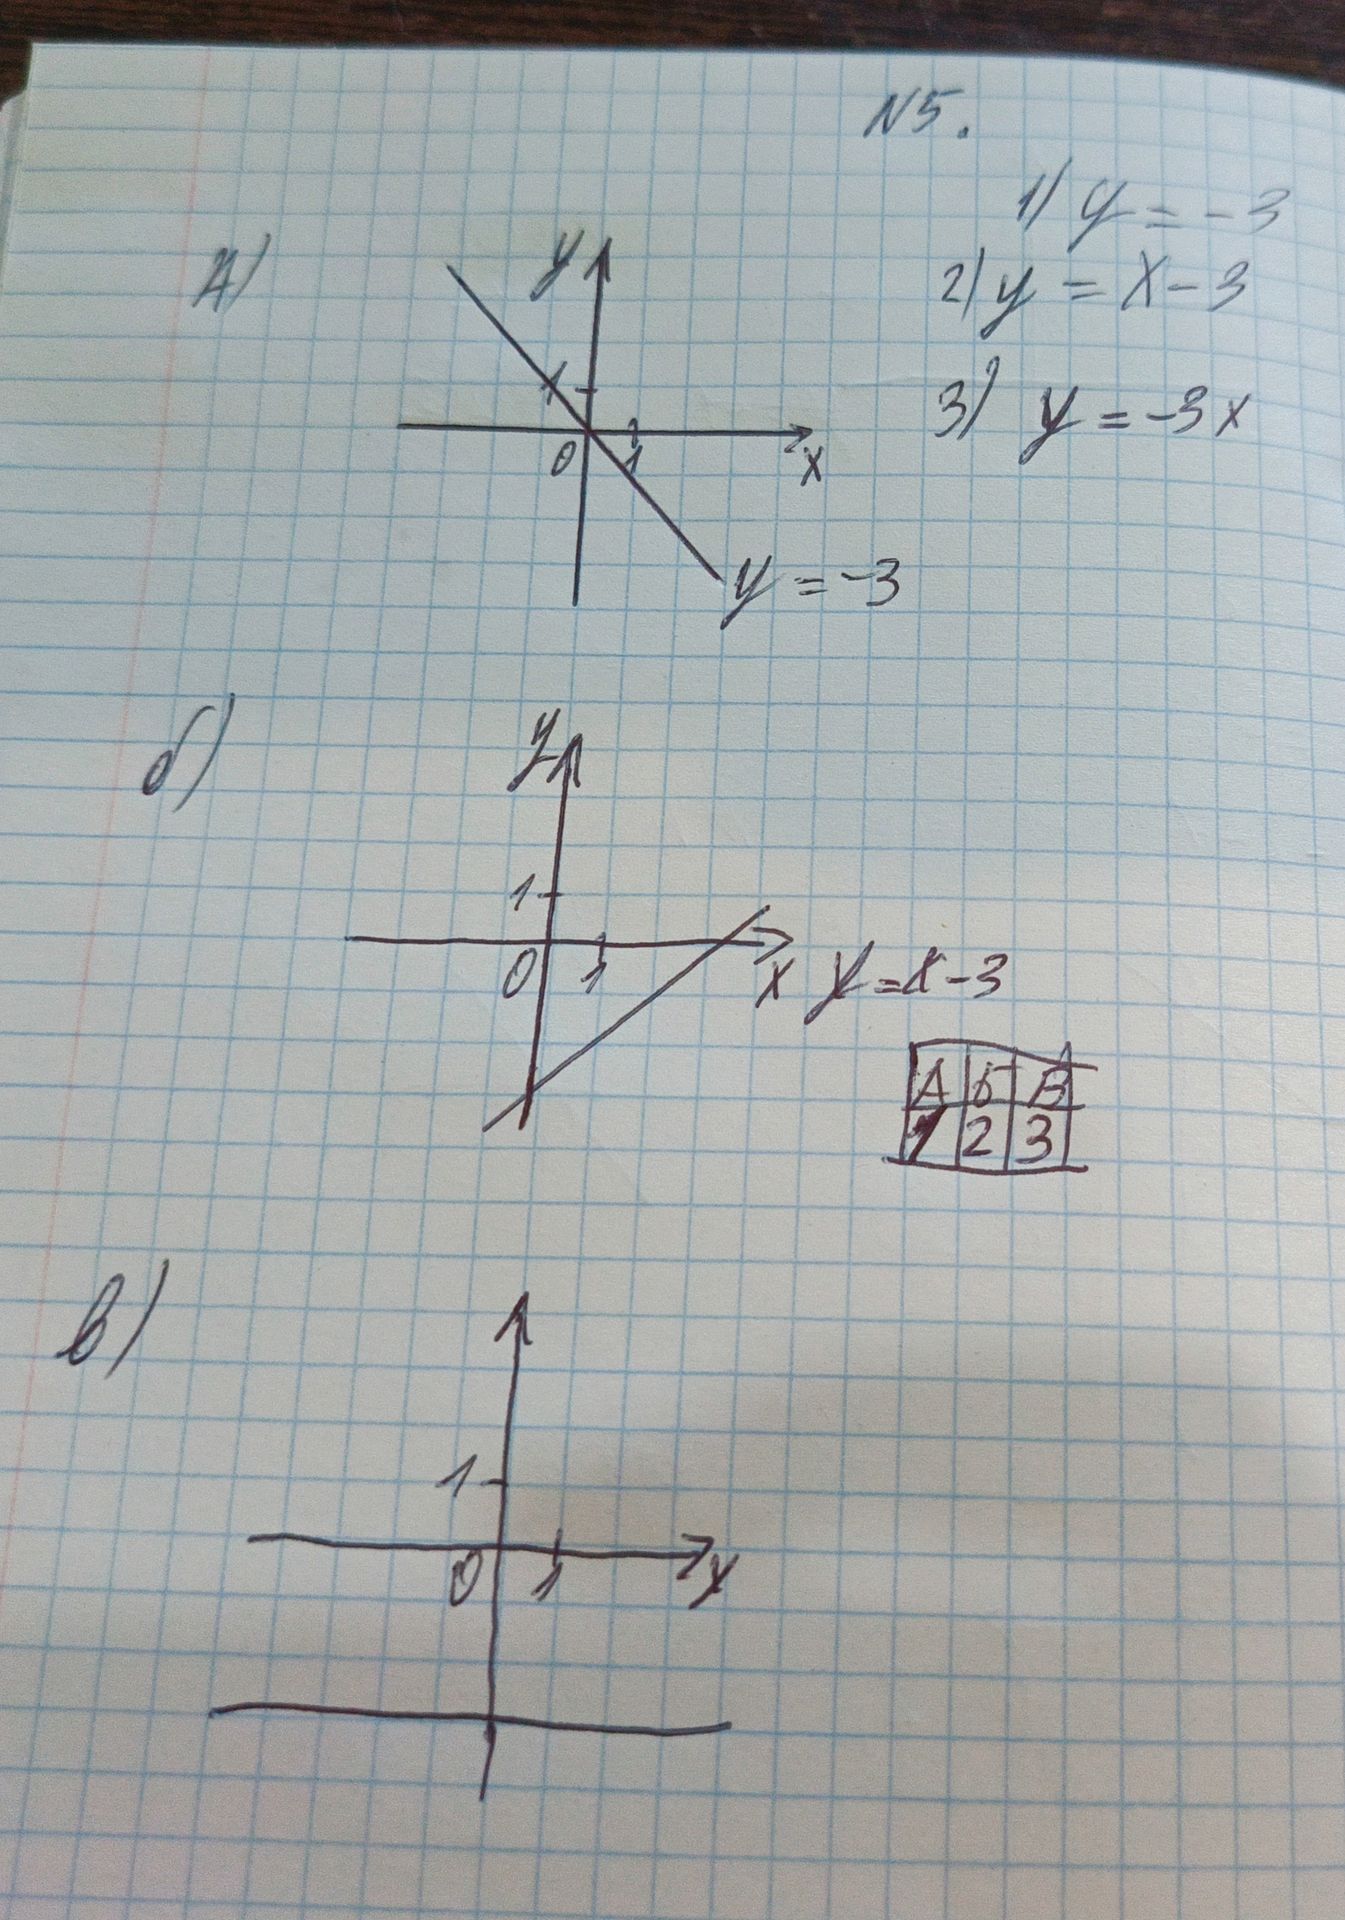 N5.
1) y = -3
А)
y
2) y = x - 3
1
3) y = -3x
0
1
x
y = -3
б)
y
1
0
1
x
y = x - 3
А б В
1 2 3
в)
1
0
1
x